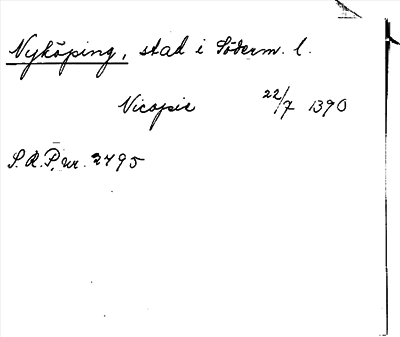 Nyköping, stad i Söderm. l.
Nicopie 22/7 1390
S.R.P. nr. 2495